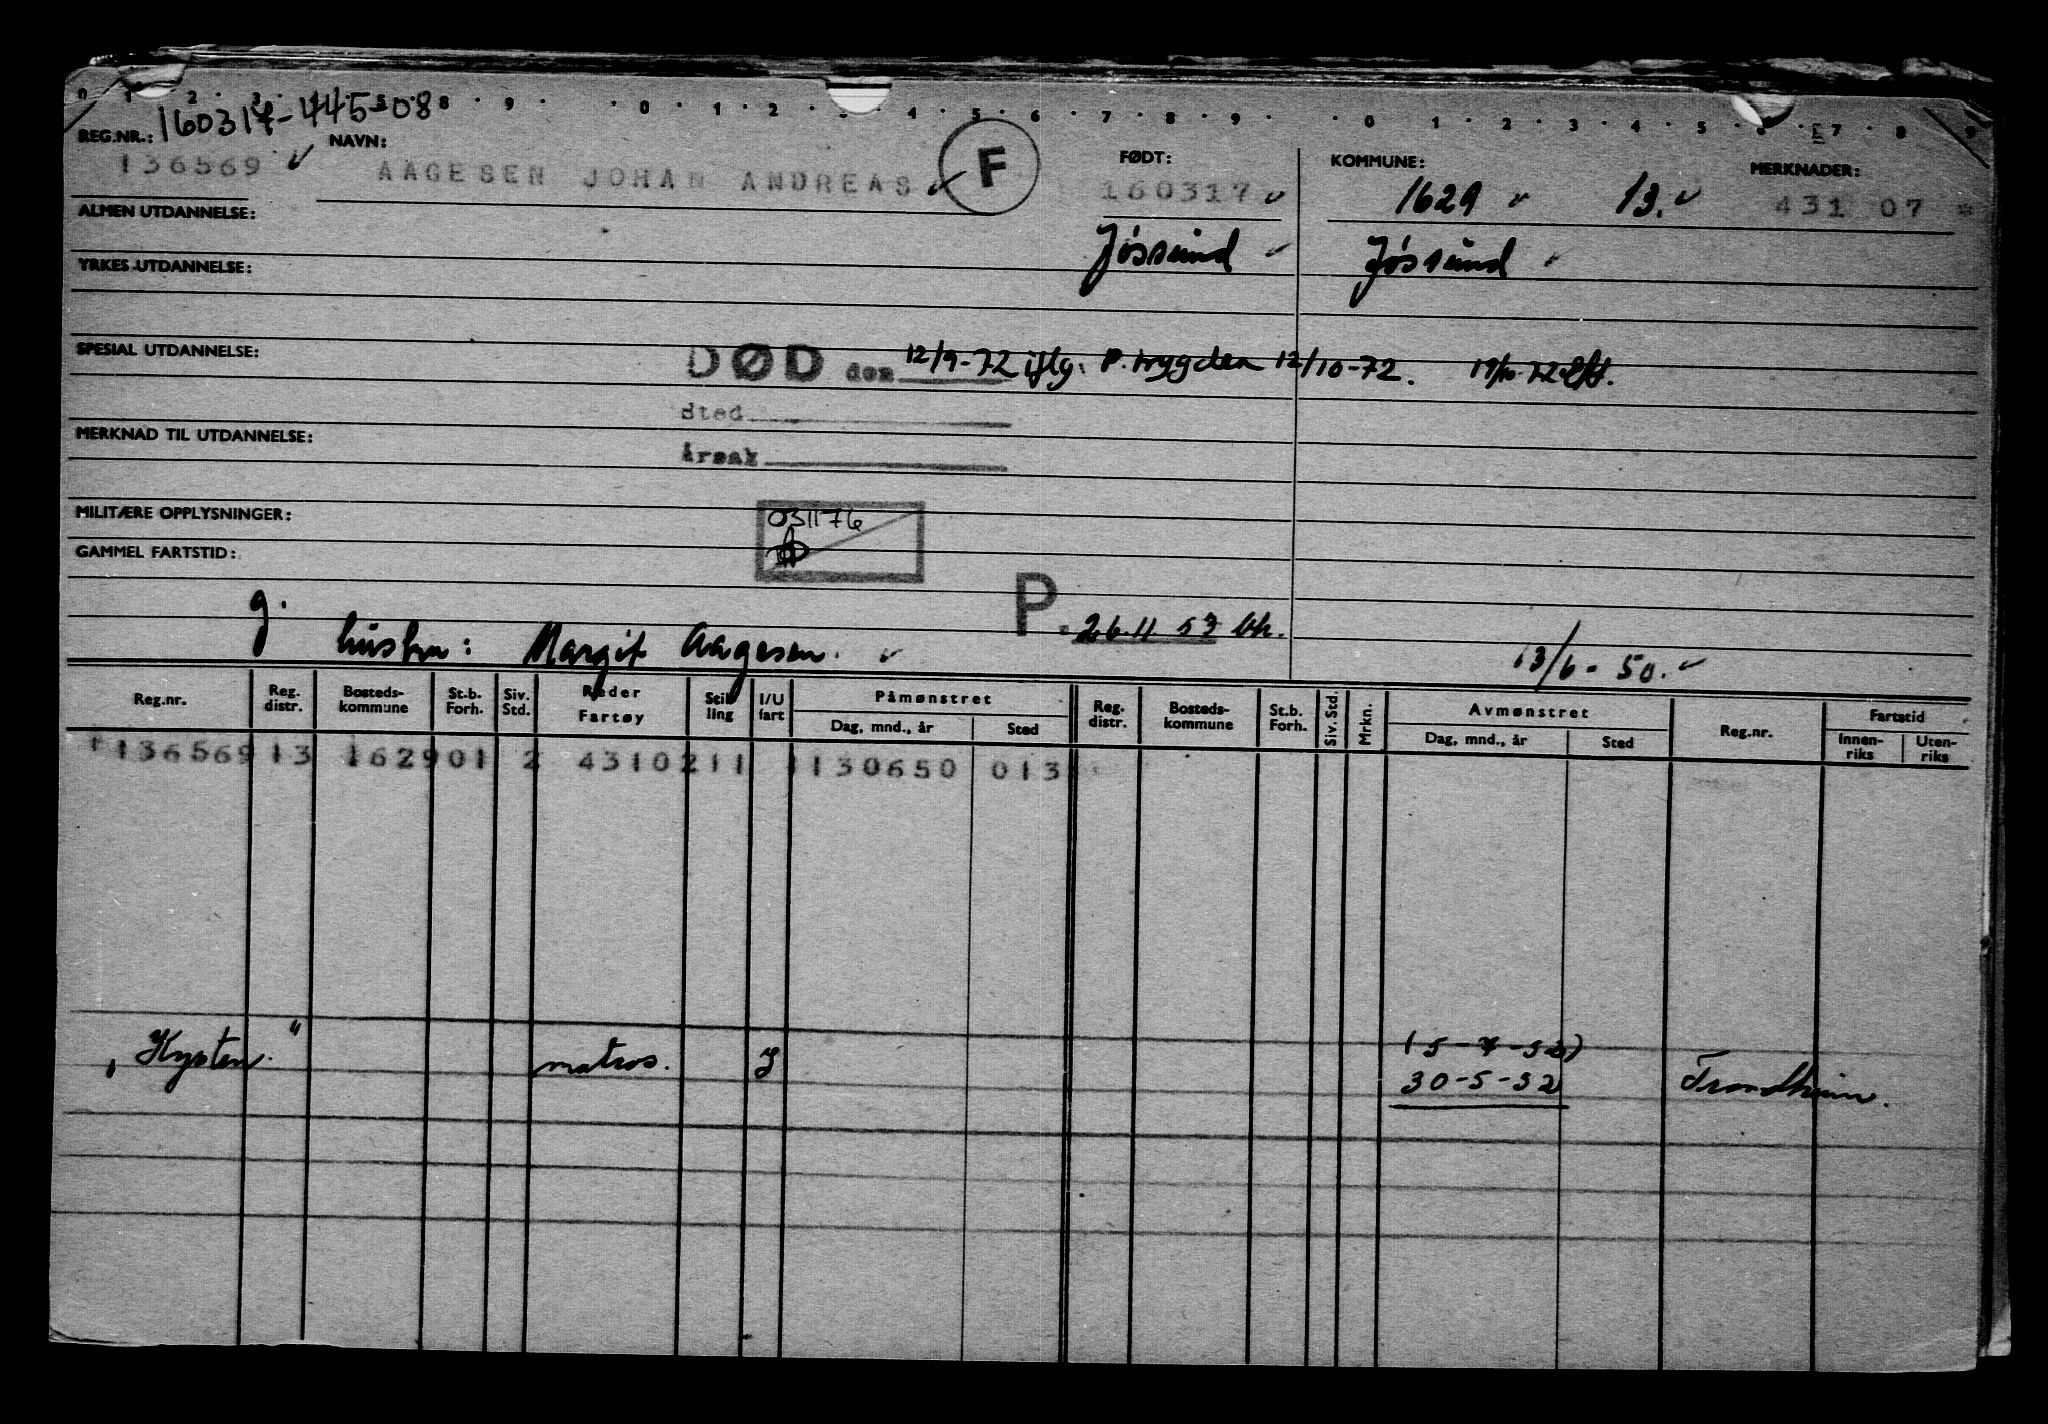 0 1 2 3 5 8 9 0 1 2 3 4 5 6 7 8 9 0 1 2 3 4 5 6 7 8 9
REG.NR.: 160317-44508
NAVN: FØDT: KOMMUNE: MERKNADER:
136569 AAGESEN JOHAN ANDREAS F 160317 1629 13. 431 07
ALMEN UTDANNELSE:
Jøssund Jøssund
YRKES-UTDANNELSE:
SPESIAL UTDANNELSE:
DØD den 12/9-72 iflg. P. trygden 12/10-72.
Sted
MERKNAD TIL UTDANNELSE:
Årsak
MILITÆRE OPPLYSNINGER: 031176
GAMMEL FARTSTID:
g. hustru: Margit Aagesen. P. 26.11.53 13/6-50.
Reg.nr. Reg. distr. Bosteds-kommune St.b. Forh. Siv. Std. Reder Fartøy Stilling I/U fart Påmønstret Dag, mnd., år Sted Reg. distr. Bosteds-kommune St.b. Forh. Siv. Std. Mrkn. Avmønstret Dag, mnd., år Sted Reg.nr. Fartstid Innen-riks Uten-riks
136569 13 1629 01 2 4310211 1 130650 013
"Kysten." matros. J (5-7-52)
30-5-52 Trondheim.